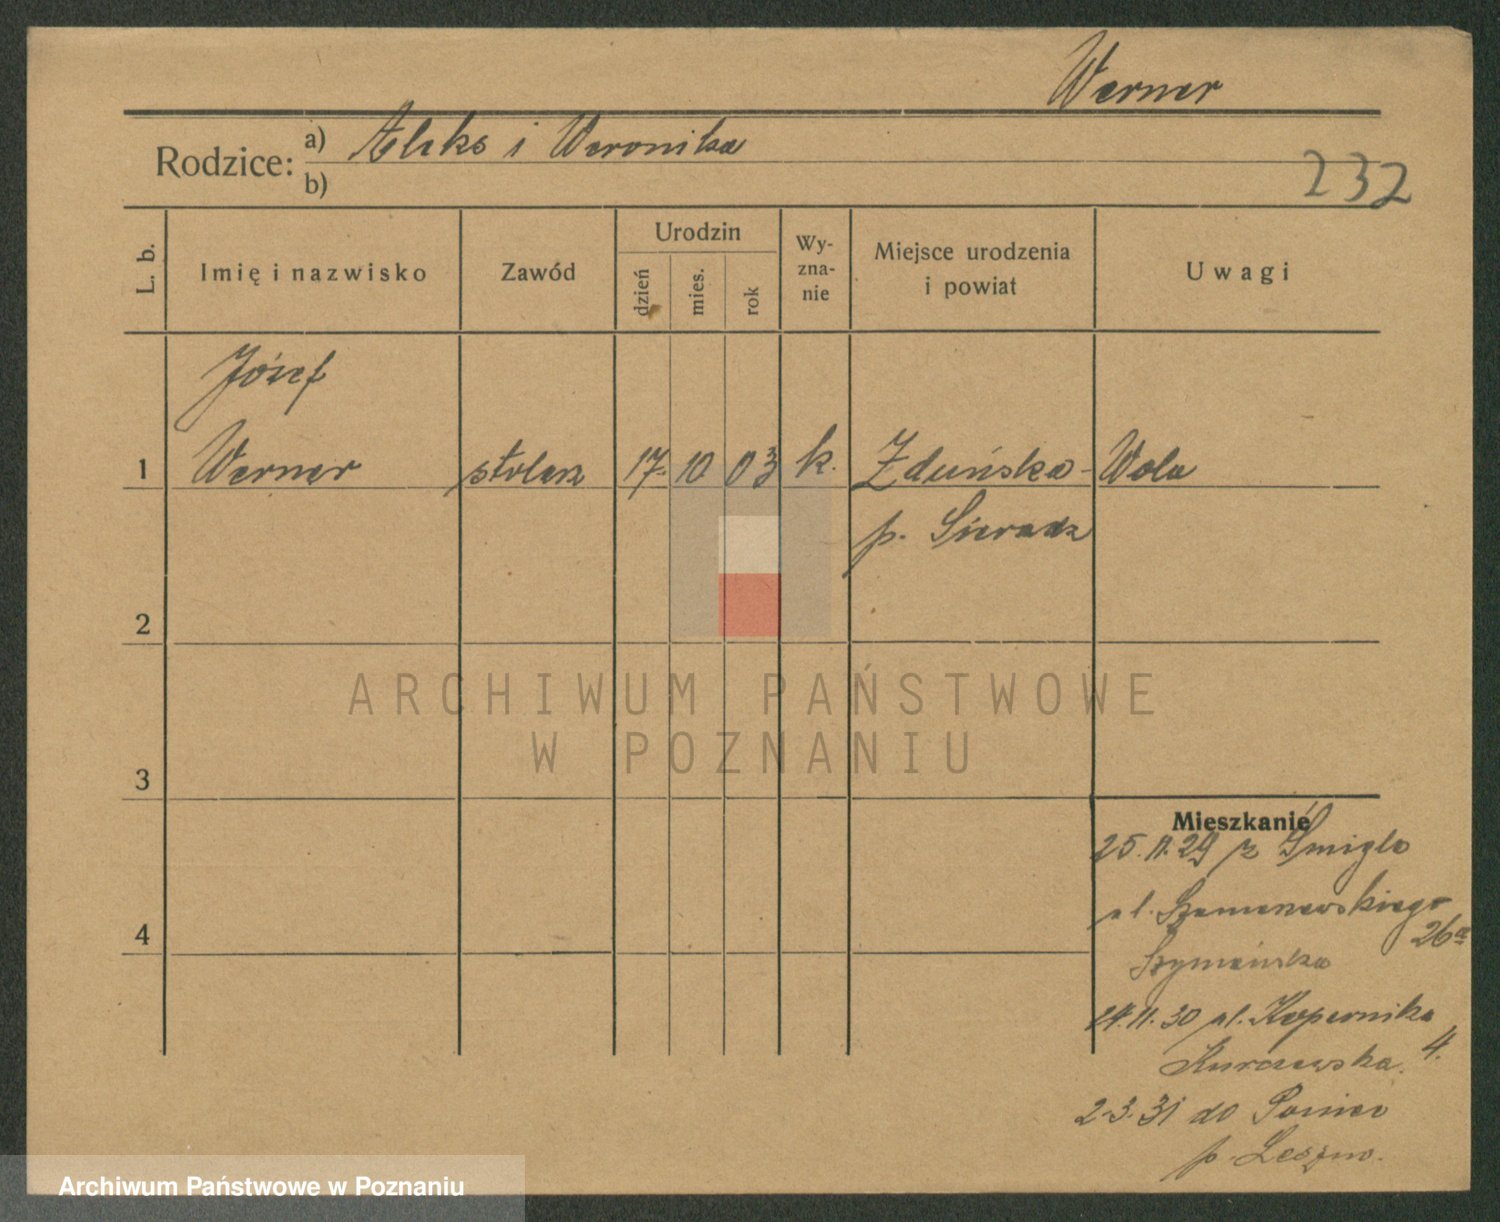 Werner
Rodzice: a) Aleks i Weronika
b)
232
L. b.
Imię i nazwisko
Zawód
Urodzin
dzień
mies.
rok
Wy-
zna-
nie
Miejsce urodzenia
i powiat
Uwagi
Józef
1 Werner stolarz 17. 10 03 k. Zduńska- Wola
p. Sieradz
2
3
4
ARCHIWUM PAŃSTWOWE
W POZNANIU
Mieszkanie
25.11.29 z Śmigla
ul.
26a
Szymańska
24.11.30 ul. Kopernika
4.
Kurczewska
2.3.31 do Poniec
p. Leszno.
Archiwum Państwowe w Poznaniu